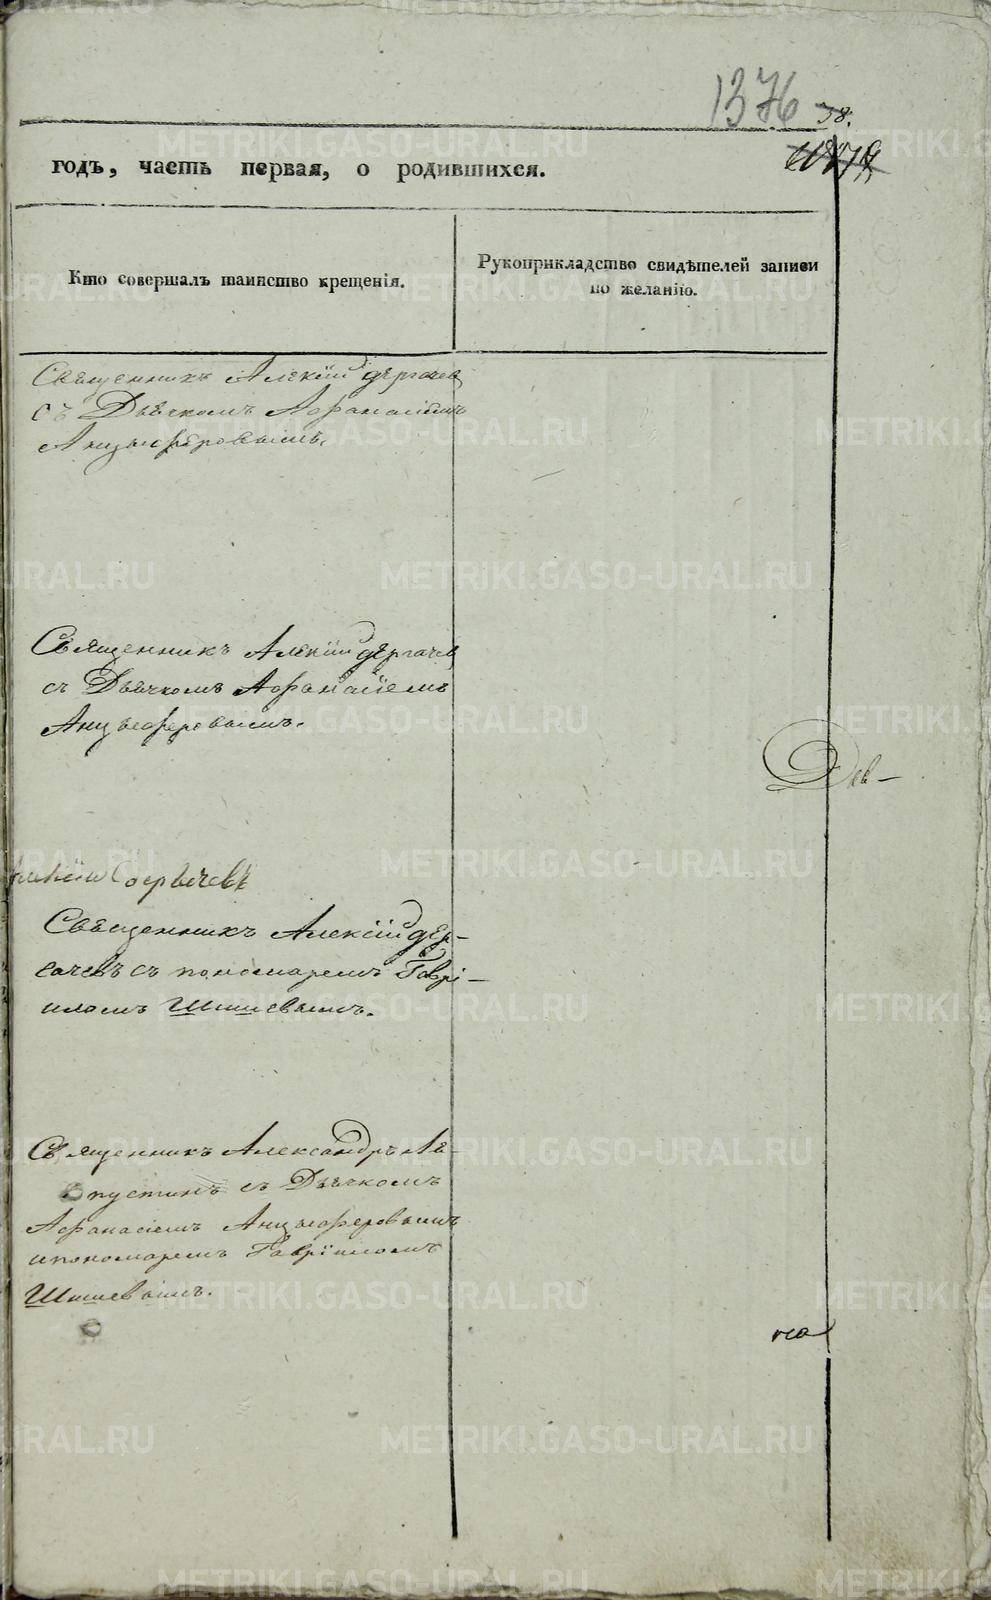 1376
38.
годъ, часть первая, о родившихся.
Кто совершалъ таинство крещенія.
Рукоприкладство свидѣтелей записи
по желанію.
Священникъ Алексій Дергачев
съ Дьячкомъ Афанасіемъ
Анцыферовымъ.
Священникъ Алексій Дергачев
съ Дьячкомъ Афанасіемъ
Анцыферовымъ.
Священникъ Алексій Дер-
гачевъ съ пономаремъ Гаврі-
иломъ Шишевымъ.
Священникъ Александръ Ля-
пустинъ съ Дьячкомъ
Афанасіемъ Анцыферовымъ
и пономаремъ Гавріиломъ
Шишевымъ.
METRIKI.GASO-URAL.RU